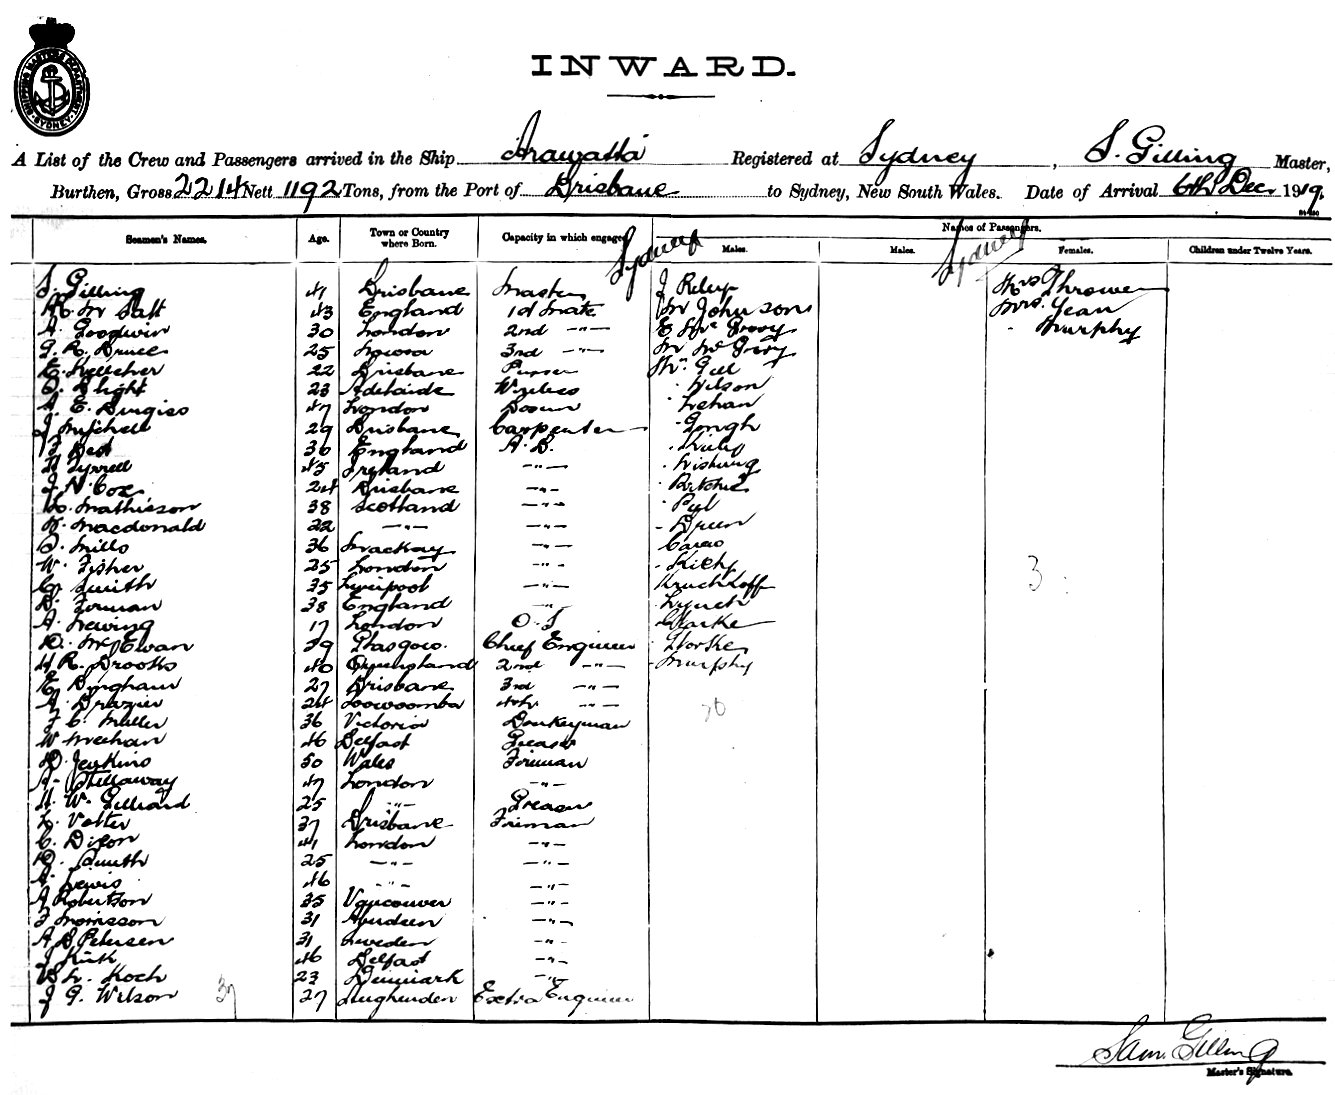 SHIPPING MASTERS DEPARTMENT SYDNEY
INWARD.
A List of the Crew and Passengers arrived in the Ship Arawatta Registered at Sydney, S. Gilling Master,
Burthen, Gross 2214 Nett 1192 Tons, from the Port of Brisbane to Sydney, New South Wales. Date of Arrival 6th Dec. 1919.
Names of Passengers.
Seamen's Names. Age. Town or Country where Born. Capacity in which engaged Males. Males. Females. Children under Twelve Years.
Sydney Sydney
S. Gilling 41 Brisbane Master J Mrs Thrower
Salt 43 England 1st Mate W Johnson Mrs.
A. Goodwin 30 London 2nd -"- E Mc Murphy
G. R. Bruce 25 3rd -"- W Mc
Kelleher 22 Brisbane Purser Gill
Blight 23 Adelaide Wireless Wilson
A. E. Burgiss 47 London Bosun Lehan
J Mitchell 29 Brisbane Carpenter Gough
Best 36 England A.B.
Tyrrell 45 Ireland -"-
J. N. Cox 24 Brisbane -"- Ritchie
Mathieson 38 Scotland -"-
Macdonald 22 -"- -"-
Mills 36 Mackay -"-
W. Fisher 25 London -"-
Smith 35 Liverpool -"-
Forman 38 England -"- Lynch
A. Lewing 17 London O.S Clarke
D. McEwan 39 Glasgow. Chief Engineer
H. R. Brooks 40 Queensland 2nd -"- Murphy
E. Bingham 27 Brisbane 3rd -"-
A. Brazier 24 Toowoomba 4th -"-
F. C. Miller 36 Victoria Donkeyman
W Meehan 46 Belfast Greaser
D. Jenkins 50 Wales Fireman
A. Stellaway 47 London -"-
H. W. Gilliard 25 -"- Greaser
Vetter 37 Brisbane Fireman
C. Dixon 41 London -"-
D. Smith 25 -"- -"-
Lewis 46 -"- -"-
A Robertson 35 Vancouver -"-
F Morrisson 31 Aberdeen -"-
A B Petersen 31 Sweden -"-
J Kirk 46 Belfast -"-
Koch 23 Denmark -"-
J G. Wilson 27 Hughenden Extra Engineer
37
20
3
Sam. Gilling
Master's Signature.